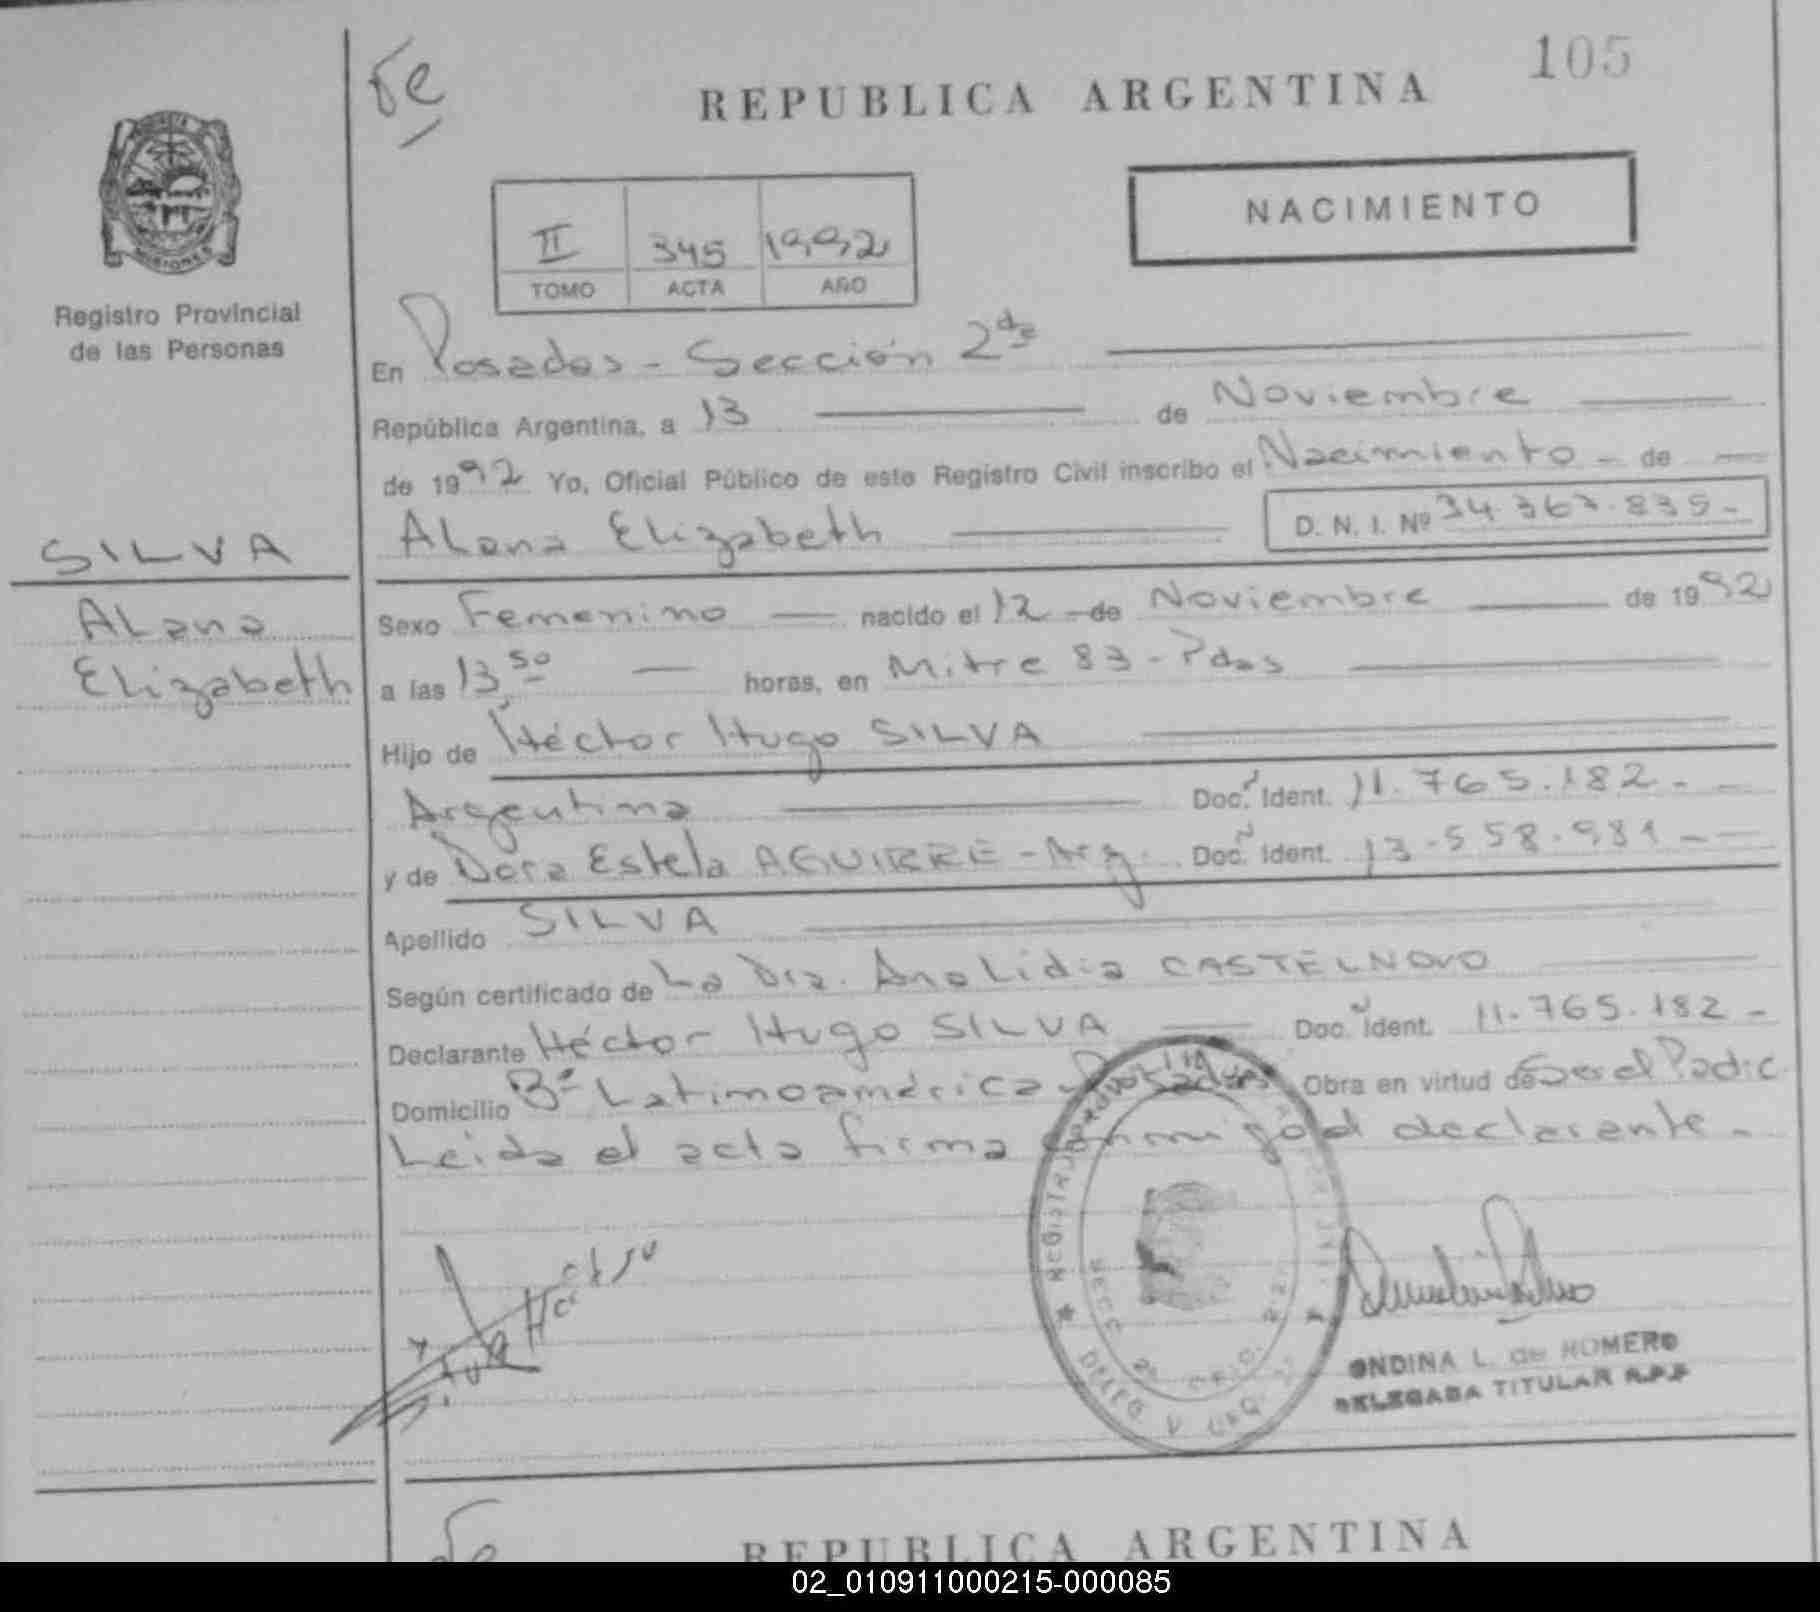 105
REPUBLICA ARGENTINA
NACIMIENTO
II 345 1992
TOMO ACTA AÑO
Registro Provincial
de las Personas
En Posadas - Sección 2da
República Argentina, a 13 de Noviembre
de 1992 Yo, Oficial Público de este Registro Civil inscribo el Nacimiento - de
Alana Elizabeth D. N. I. Nº 34.367.835-
SILVA
Alana
Elizabeth
Sexo Femenino nacido el 12 de Noviembre de 1992
a las 13 50 horas, en Mitre 83 - Pdas
Hijo de Héctor Hugo SILVA
Argentina Doc. Ident. 11.765.182-
y de Dora Estela AGUIRRE - Arg. Doc. Ident. 13.558.981-
Apellido SILVA
Según certificado de La Dra. Ana Lidia CASTELNOVO
Declarante Héctor Hugo SILVA Doc. Ident. 11.765.182-
Domicilio Bº Latinoamérica - Posadas Obra en virtud de Ser el Padre
Leida el acta firma conmigo el declarante.
Silva Hector
ONDINA L. de ROMERO
DELEGADA TITULAR R.P.P
REPUBLICA ARGENTINA
02_010911000215-000085